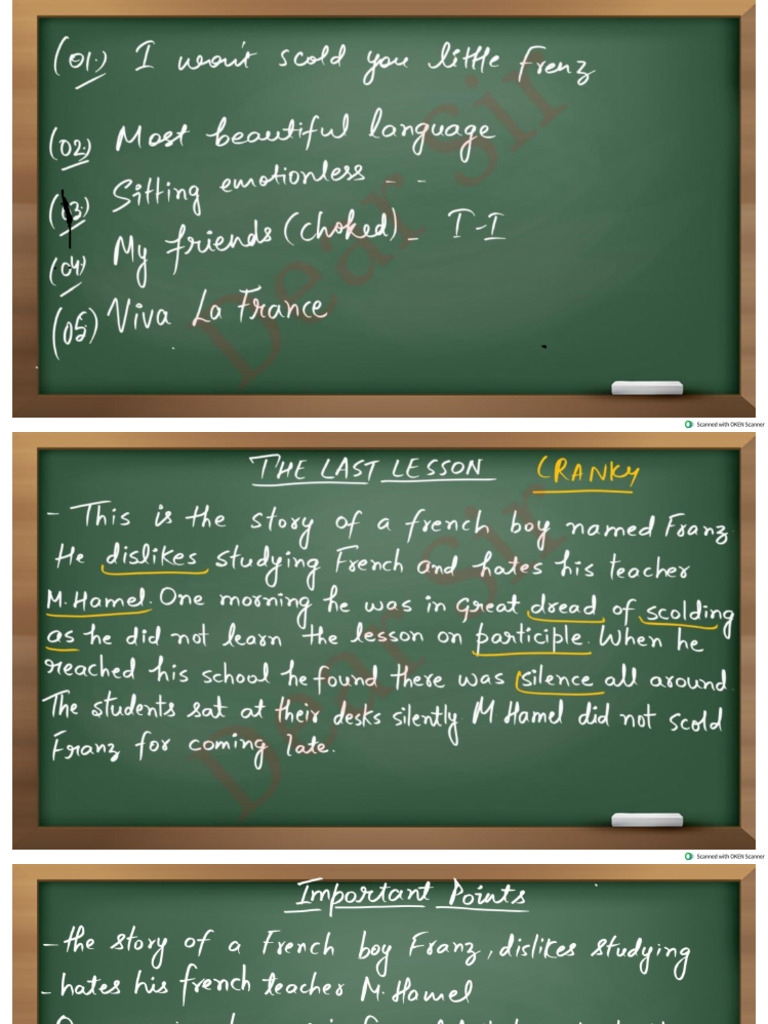 (01.) I won't scold you little frenz
(02.) Most beautiful language
(03.) Sitting emotionless - -
(04) My friends (choked) - I - I
(05) Viva La France
Scanned with OKEN Scanner
THE LAST LESSON CRANKY
- This is the story of a french boy named Franz.
He dislikes studying French and hates his teacher
M. Hamel. One morning he was in great dread of scolding
as he did not learn the lesson on participle. When he
reached his school he found there was silence all around.
The students sat at their desks silently M Hamel did not scold
Franz for coming late.
Scanned with OKEN Scanner
Important Points
- the story of a French boy Franz, dislikes studying
- hates his french teacher M. Hamel
Dear Sir
Dear Sir